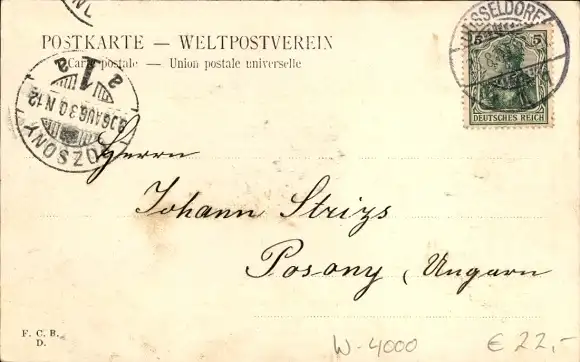 POSTKARTE — WELTPOSTVEREIN
Carte postale — Union postale universelle
DÜSSELDORF
5 5
DEUTSCHES REICH
POZSONY
906 AUG 30 N 12
1
a a
Herrn
Johann Strizs
Posony (Ungarn
F. C. B.
D.
W-4000
€ 22,-